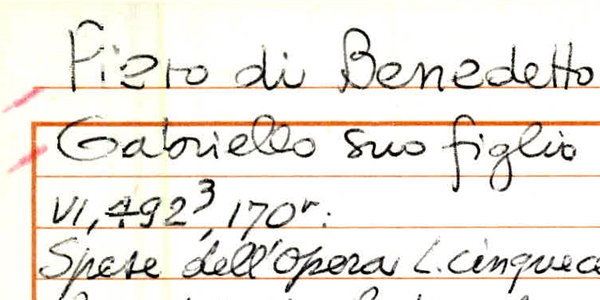 Piero di Benedetto
Gabriello suo figlio
VI, 492³, 170ʳ:
Spese dell'Opera L. cinque